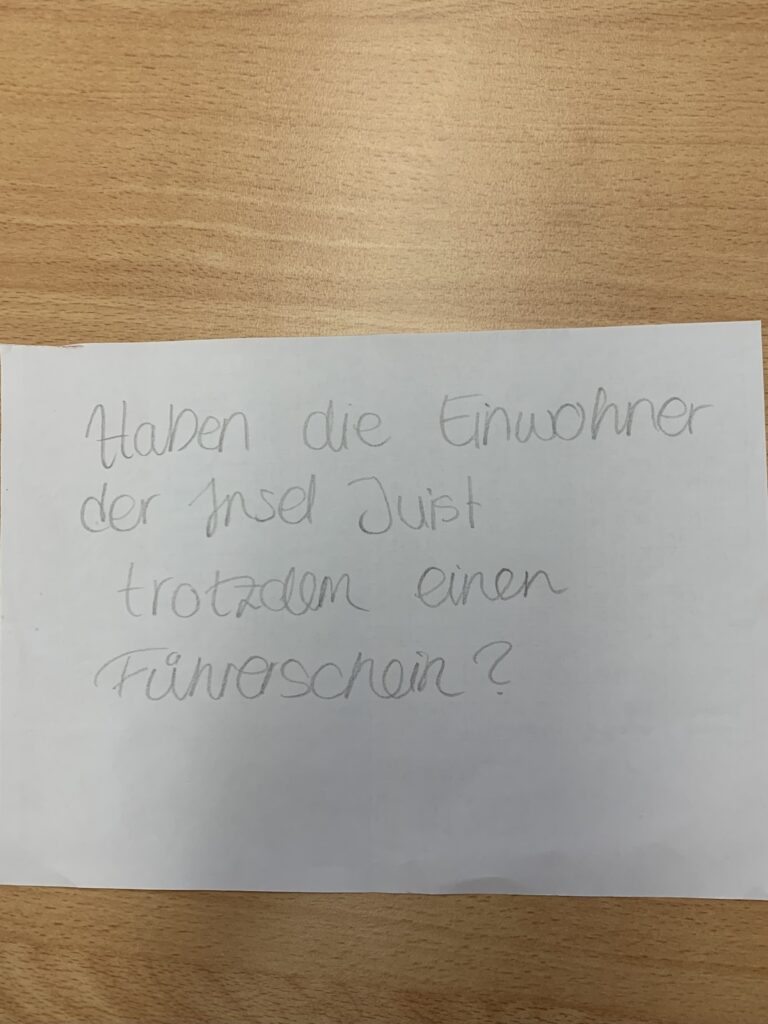 Haben die Einwohner
der Insel Juist
trotzdem einen
Führerschein?